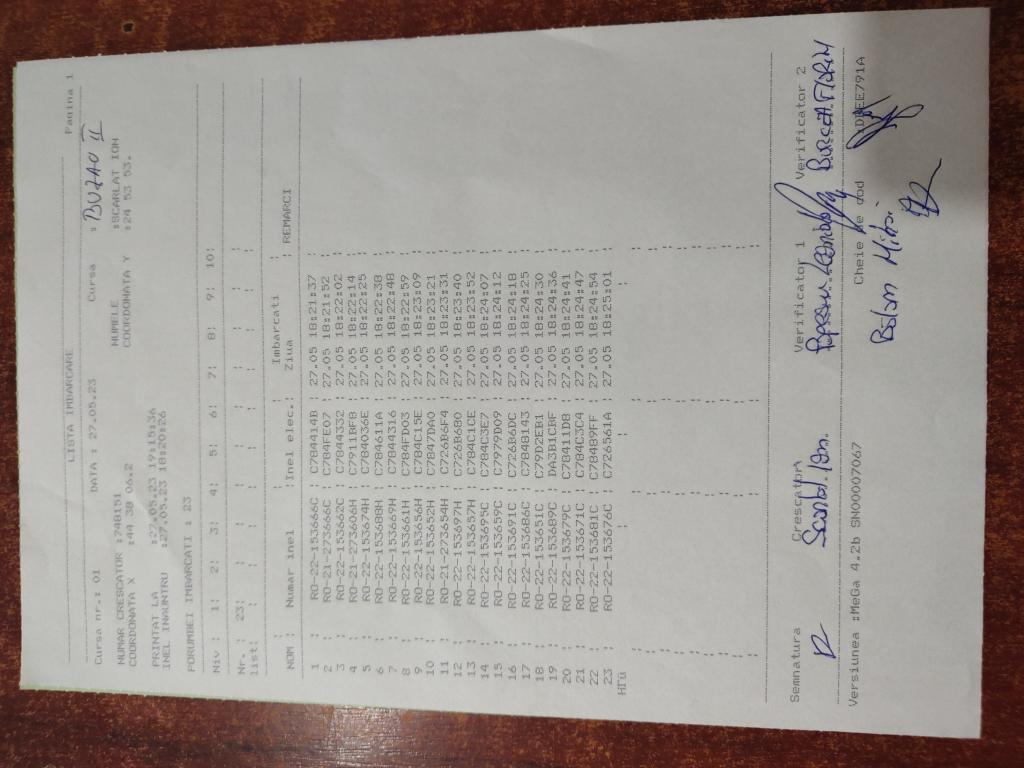 LISTA IMBARCARE Pagina 1
Cursa nr.: 01 DATA : 27.05.23 Cursa : BUZAO II
NUMAR CRESCATOR :748151 NUMELE :SCARLAT ION
COORDONATA X :44 38 06.2 COORDONATA Y :24 53 53.
PRINTAT LA :27.05.23 19:15:36
INEL INAUNTRU :27.05.23 18:20:26
PORUMBEI IMBARCATI : 23
Niv : 1: 2: 3: 4: 5: 6: 7: 8: 9: 10:
Nr. : 23: : : : : : : : : :
list: : : : : : : : : : :
Imbarcati
NOM : Numar inel :Inel elec.: Ziua : REMARCI
1 : RO-22-153666C : C784414B : 27.05 18:21:37 :
2 : RO-21-273666C : C784FE07 : 27.05 18:21:52 :
3 : RO-22-153662C : C7844332 : 27.05 18:22:02 :
4 : RO-21-273606H : C7911BF8 : 27.05 18:22:14 :
5 : RO-22-153674H : C784036E : 27.05 18:22:25 :
6 : RO-22-153688H : C784611A : 27.05 18:22:38 :
7 : RO-22-153669H : C7844316 : 27.05 18:22:48 :
8 : RO-22-153661H : C784FD03 : 27.05 18:22:59 :
9 : RO-22-153656H : C784C15E : 27.05 18:23:09 :
10 : RO-22-153652H : C7847DA0 : 27.05 18:23:21 :
11 : RO-21-273654H : C726B6F4 : 27.05 18:23:31 :
12 : RO-22-153697H : C726B680 : 27.05 18:23:40 :
13 : RO-22-153657H : C784C1CE : 27.05 18:23:52 :
14 : RO-22-153695C : C784C3E7 : 27.05 18:24:07 :
15 : RO-22-153659C : C7979D09 : 27.05 18:24:12 :
16 : RO-22-153691C : C726B6DC : 27.05 18:24:18 :
17 : RO-22-153686C : C7848143 : 27.05 18:24:25 :
18 : RO-22-153651C : C79D2EB1 : 27.05 18:24:30 :
19 : RO-22-153689C : DA3B1CBF : 27.05 18:24:36 :
20 : RO-22-153679C : C78411D8 : 27.05 18:24:41 :
21 : RO-22-153671C : C784C3C4 : 27.05 18:24:47 :
22 : RO-22-153681C : C78489FF : 27.05 18:24:54 :
23 : RO-22-153676C : C726561A : 27.05 18:25:01 :
Semnatura Crescator Verificator 1 Verificator 2
Scarlat Ion.
Versiunea :MeGa 4.2b SN00007067 Cheie de cod